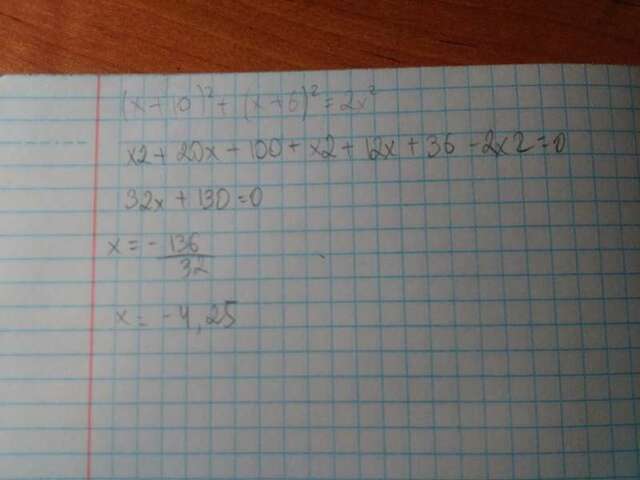 (x+10)²+(x+6)²=2x²
x2+20x+100+x2+12x+36-2x2=0
32x+130=0
x=-136/32
x=-4,25